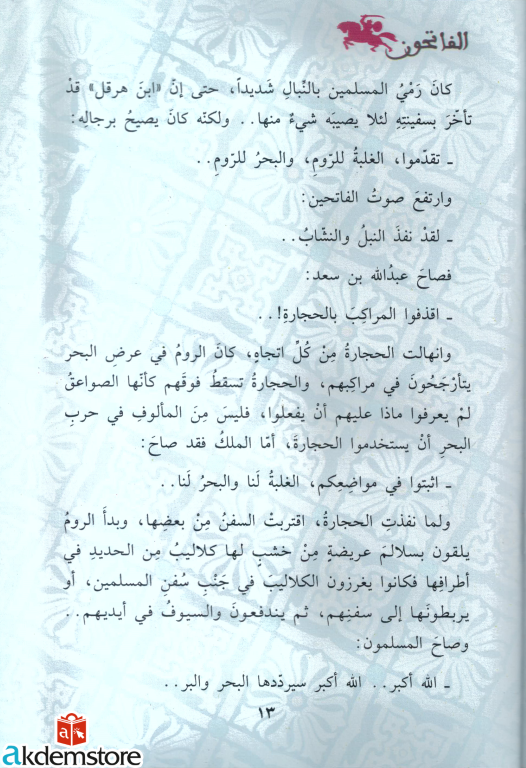 الفاتحون
كانَ رَمْيُ المسلمين بالنِّبالِ شَديداً، حتى إنّ «ابنَ هرقل» قدْ
تأخّرَ بسفينتِهِ لئلا يصيبَه شيءٌ منها.. ولكنّه كانَ يصيحُ برجالِه:
ـ تقدّموا، الغلبةُ للرّومِ، والبحرُ للرّومِ..
وارتفعَ صوتُ الفاتحين:
ـ لقدْ نفذَ النبلُ والنشّابُ..
فصاحَ عبدُالله بن سعد:
ـ اقذفوا المراكِبَ بالحجارةِ!..
وانهالت الحجارةُ مِنْ كُلِّ اتجاهٍ، كانَ الرومُ في عرضِ البحر
يتأرْجَحُونَ في مراكبِهم، والحجارةُ تسقطُ فوقَهم كأنّها الصواعقُ
لمْ يعرفوا ماذا عليهم أنْ يفْعلوا، فليسَ مِنَ المألوفِ في حربِ
البحرِ أنْ يستخدموا الحجارةَ، أمّا الملكُ فقد صاحَ:
ـ اثبتوا في مواضِعِكم، الغلبةُ لَنا والبحرُ لَنا..
ولما نفذتِ الحجارةُ، اقتربتْ السفنُ مِنْ بعضِها، وبدأَ الرومُ
يلقون بسلالمَ عريضةٍ مِنْ خشبٍ لها كلاليبُ مِن الحديدِ في
أطرافِها فكانوا يغرزون الكلاليبَ في جَنْبِ سُفنِ المسلمين، أو
يربطونَها إلى سفنِهم، ثم يندفعونَ والسيوفُ في أيديهم..
وصاحَ المسلمون:
ـ الله أكبر.. الله أكبر سيردّدها البحر والبر..
١٣
akdemstore